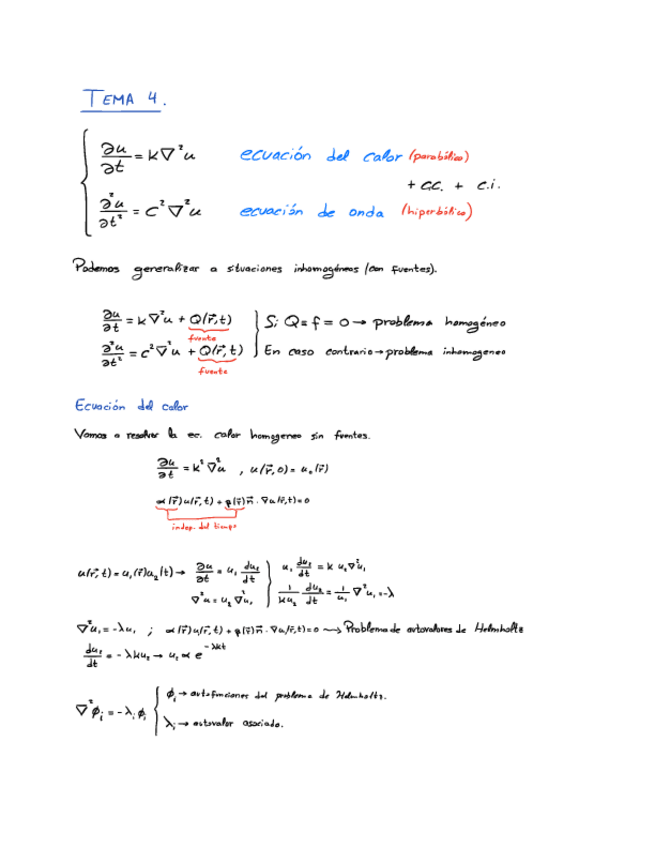 TEMA 4.
∂u/∂t = k∇²u ecuación del calor (parabólica)
+ c.c. + c.i.
∂²u/∂t² = c²∇²u ecuación de onda (hiperbólica)
Podemos generalizar a situaciones inhomogéneas (con fuentes).
∂u/∂t = k∇²u + Q(r⃗,t) } Si Q = f = 0 → problema homogéneo
fuente
∂²u/∂t² = c²∇²u + Q(r⃗,t) } En caso contrario → problema inhomogeneo
fuente
Ecuación del calor
Vamos a resolver la ec. calor homogeneo sin fuentes.
∂u/∂t = k²∇²u , u(r⃗,0) = u₀(r⃗)
α(r⃗)u(r⃗,t) + β(r⃗)n⃗·∇u(r⃗,t) = 0
indep. del tiempo
u(r⃗,t) = u₁(r⃗)u₂(t) → ∂u/∂t = u₁ du₂/dt } u₁ du₂/dt = k u₂∇²u₁
∇²u = u₂∇²u₁ } 1/ku₂ du₂/dt = 1/u₁ ∇²u₁ = -λ
∇²u₁ = -λu₁ ; α(r⃗)u(r⃗,t) + β(r⃗)n⃗·∇u(r⃗,t) = 0 ⇝ Problema de autovalores de Helmholtz
du₂/dt = -λku₂ → u₂ ∝ e^-λkt
∇²ϕᵢ = -λᵢϕᵢ { ϕᵢ → autofunciones del problema de Helmholtz.
λᵢ → autovalor asociado.